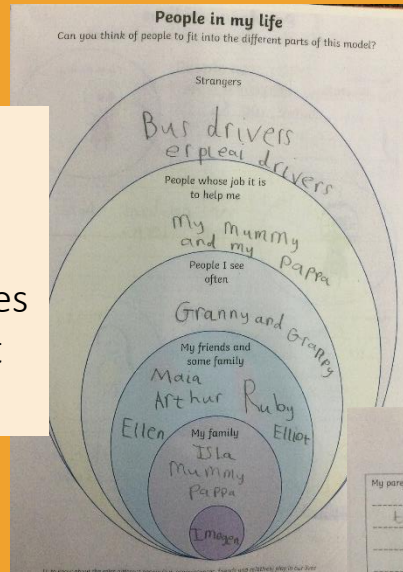 People in my life
Can you think of people to fit into the different parts of this model?
Strangers
Bus drivers
erpleal drivers
People whose job it is
to help me
My Mummy
and my Pappa
People I see
often
Granny and Granpy
My friends and
some family
Maia
Arthur
Ruby
Ellen
Elliot
My family
Isla
Mummy
Pappa
Imogen
es
My pare
t